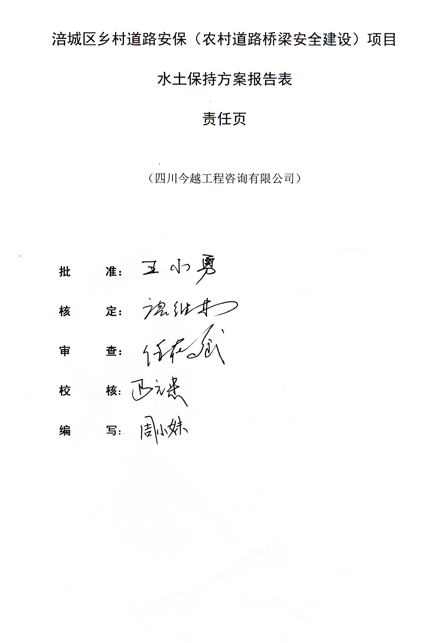 涪城区乡村道路安保（农村道路桥梁安全建设）项目
水土保持方案报告表
责任页
（四川今越工程咨询有限公司）
批 准：王小勇
核 定：
审 查：任
校 核：
编 写：周小妹